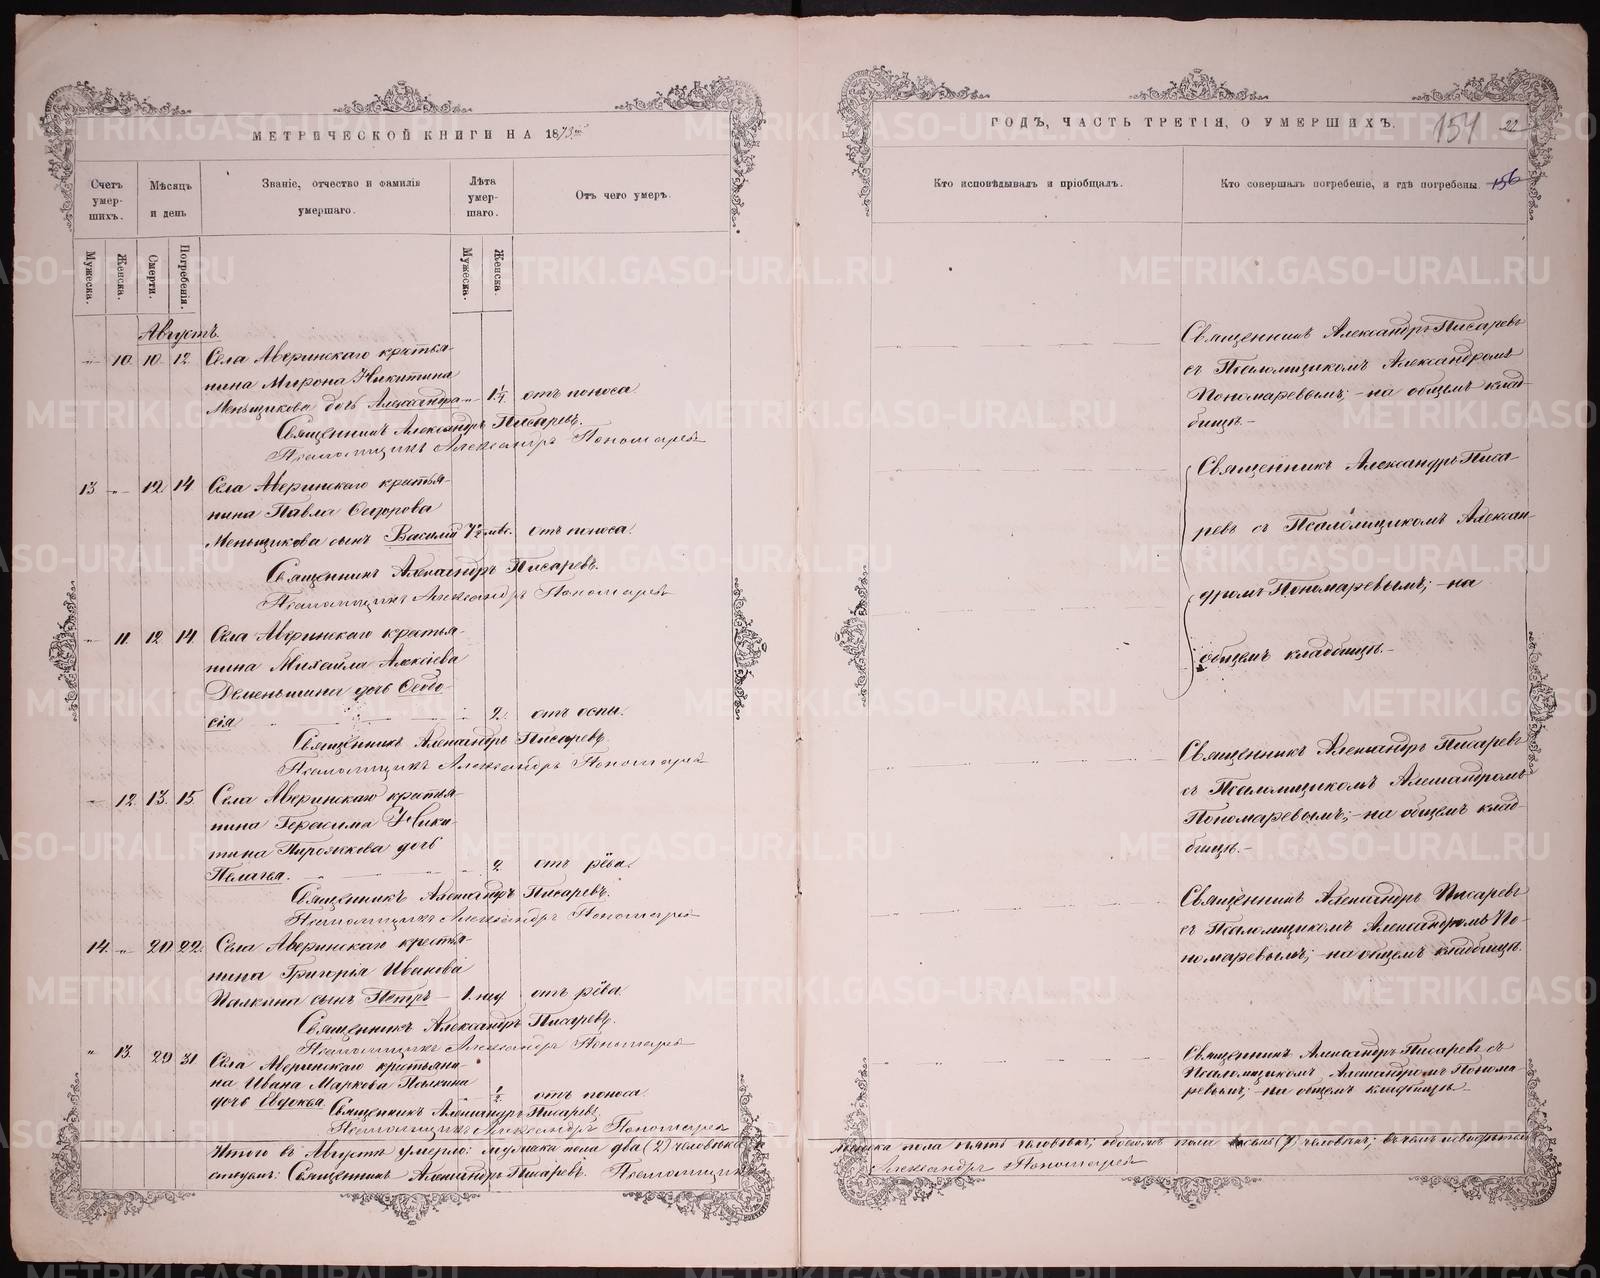 МЕТРИЧЕСКОЙ КНИГИ НА 1873
Счетъ умер-шихъ.
Мѣсяцъ и день
Званіе, отчество и фамилія умершаго.
Лѣта умер-шаго.
Отъ чего умеръ.
Мужеска.
Женска.
Смерти.
Погребенія.
Мужеска.
Женска.
Августъ.
10. 10. 12. Села Аверинскаго крестья-
нина Мирона Никитина
Меньщикова дочь Александра 1¼ отъ поноса.
Священникъ Александръ Писаревъ.
Псаломщикъ Александръ Пономаревъ
13 12. 14 Села Аверинскаго крестья-
нина Павла Ѳедорова
Меньщикова сынъ Василій отъ поноса.
Священникъ Александръ Писаревъ.
Псаломщикъ Александръ Пономаревъ
11. 12. 14. Села Аверинскаго крестья-
нина Михаила Алексіева
Деменьшина дочь Ѳеодо-
сія 2. отъ оспы.
Священникъ Александръ Писаревъ.
Псаломщикъ Александръ Пономаревъ
12. 13. 15. Села Аверинскаго крестья-
нина Герасима Ники-
тина дочь
Пелагея. 2. отъ рёва.
Священникъ Александръ Писаревъ.
Псаломщикъ Александръ Пономаревъ
14. 20. 22. Села Аверинскаго крестья-
нина Григорія Иванова
сынъ Петръ 1. нед отъ рёва.
Священникъ Александръ Писаревъ.
Псаломщикъ Александръ Пономаревъ
13. 29 31 Села Аверинскаго крестьяни-
на Ивана Маркова
дочь Евдокья ½ отъ поноса.
Священникъ Александръ Писаревъ.
Псаломщикъ Александръ Пономаревъ
Итого въ Августѣ умерло: мужеска пола два (2) человѣка
Священникъ Александръ Писаревъ. Псаломщикъ
ГОДЪ, ЧАСТЬ ТРЕТІЯ, О УМЕРШИХЪ.
154
22
Кто исповѣдывалъ и пріобщалъ.
Кто совершалъ погребеніе, и гдѣ погребены.
156
Священникъ Александръ Писаревъ
съ Псаломщикомъ Александромъ
Пономаревымъ; - на общемъ клад-
бищѣ. -
Священникъ Александръ Писа-
ревъ съ Псаломщикомъ Алексан-
дромъ Пономаревымъ; - на
общемъ кладбищѣ. -
Священникъ Александръ Писаревъ
съ Псаломщикомъ Александромъ
Пономаревымъ; - на общемъ клад-
бищѣ. -
Священникъ Александръ Писаревъ
съ Псаломщикомъ Александромъ По-
номаревымъ; - на общемъ кладбищѣ.
Священникъ Александръ Писаревъ съ
Псаломщикомъ Александромъ Понома-
ревымъ; - на общемъ кладбищѣ -
женска пола пять человѣкъ, обоего пола (7) человѣкъ; въ чемъ
Александръ Пономаревъ
METRIKI.GASO-URAL.RU